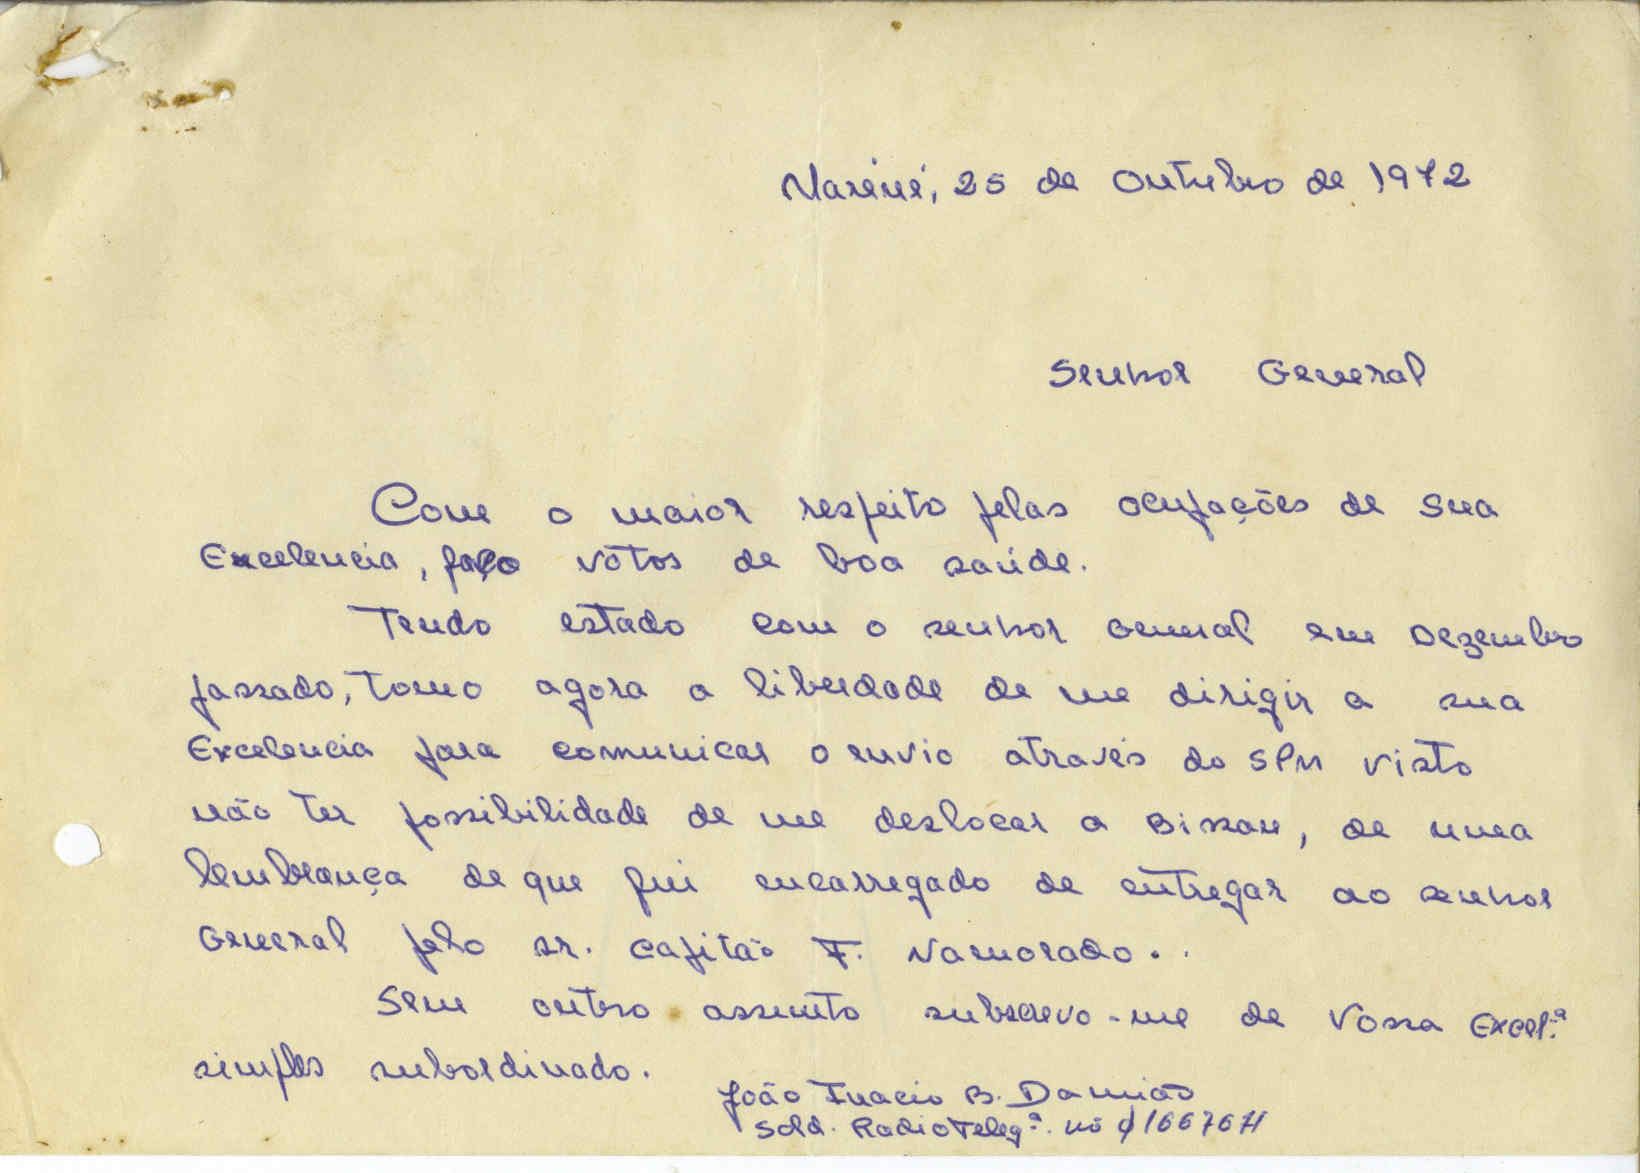 Nareué, 25 de Outubro de 1972
Senhor General
Com o maior respeito pelas ocupações de Sua
Excelencia, faço vótos de boa saúde.
Tendo estado com o senhor General em Dezembro
passado, tomo agora a liberdade de me dirigir a sua
Excelencia para comunicar o envio através do SPM visto
não ter possibilidade de me deslocar a Bissau, de uma
lembrança de que fui encarregado de entregar ao senhor
General pelo sr. capitão F. Namorado.
Sem outro assunto subscrevo-me de Vossa Excel.ª
simples subordinado.
João Inacio B. Damião
Sold. RadioTeleg.ª nº